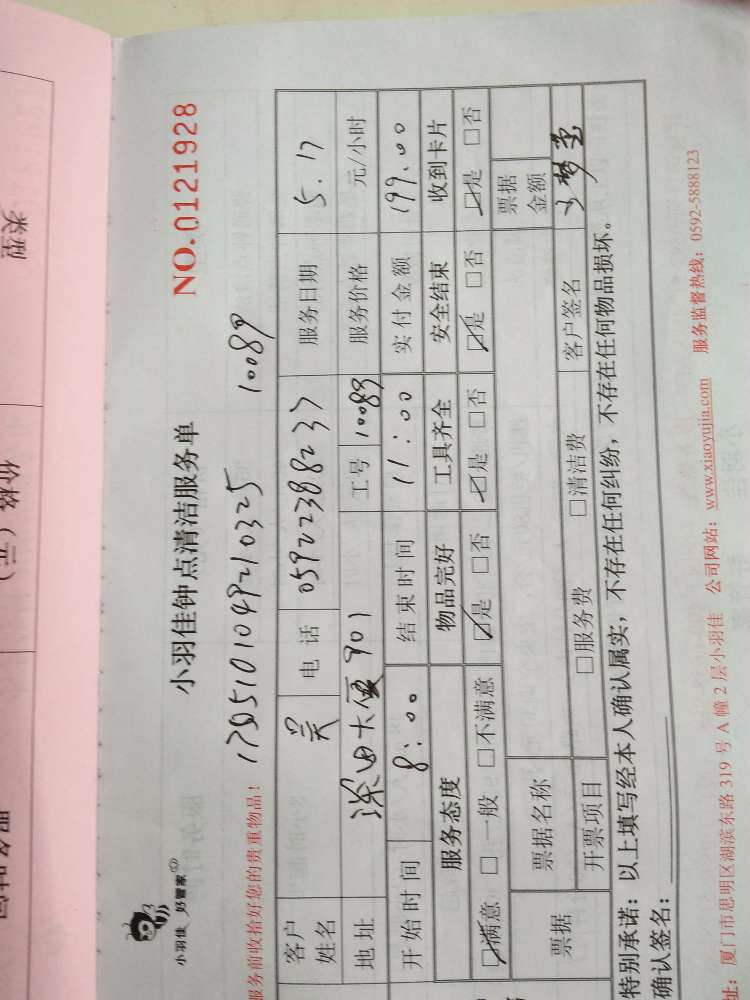 小羽佳 好管家
小羽佳钟点清洁服务单
NO.0121928
服务前收拾好您的贵重物品！
1705101049210325 10089
客户姓名 吴 电话 05922388237 服务日期 5.17
地址 深田大厦 901 工号 10089 服务价格 元/小时
开始时间 8:00 结束时间 11:00 实付金额 199.00
服务态度 物品完好 工具齐全 安全结束 收到卡片
☑满意 □一般 □不满意 ☑是 □否 ☑是 □否 ☑是 □否 ☑是 □否
票据 票据名称 票据金额
开票项目 □服务费 □清洁费 客户签名
特别承诺：以上填写经本人确认属实，不存在任何纠纷，不存在任何物品损坏。
确认签名：
址：厦门市思明区湖滨东路 319 号 A 幢 2 层小羽佳 公司网站：www.xiaoyujia.com 服务监督热线：0592-5888123
类型
价格（元）